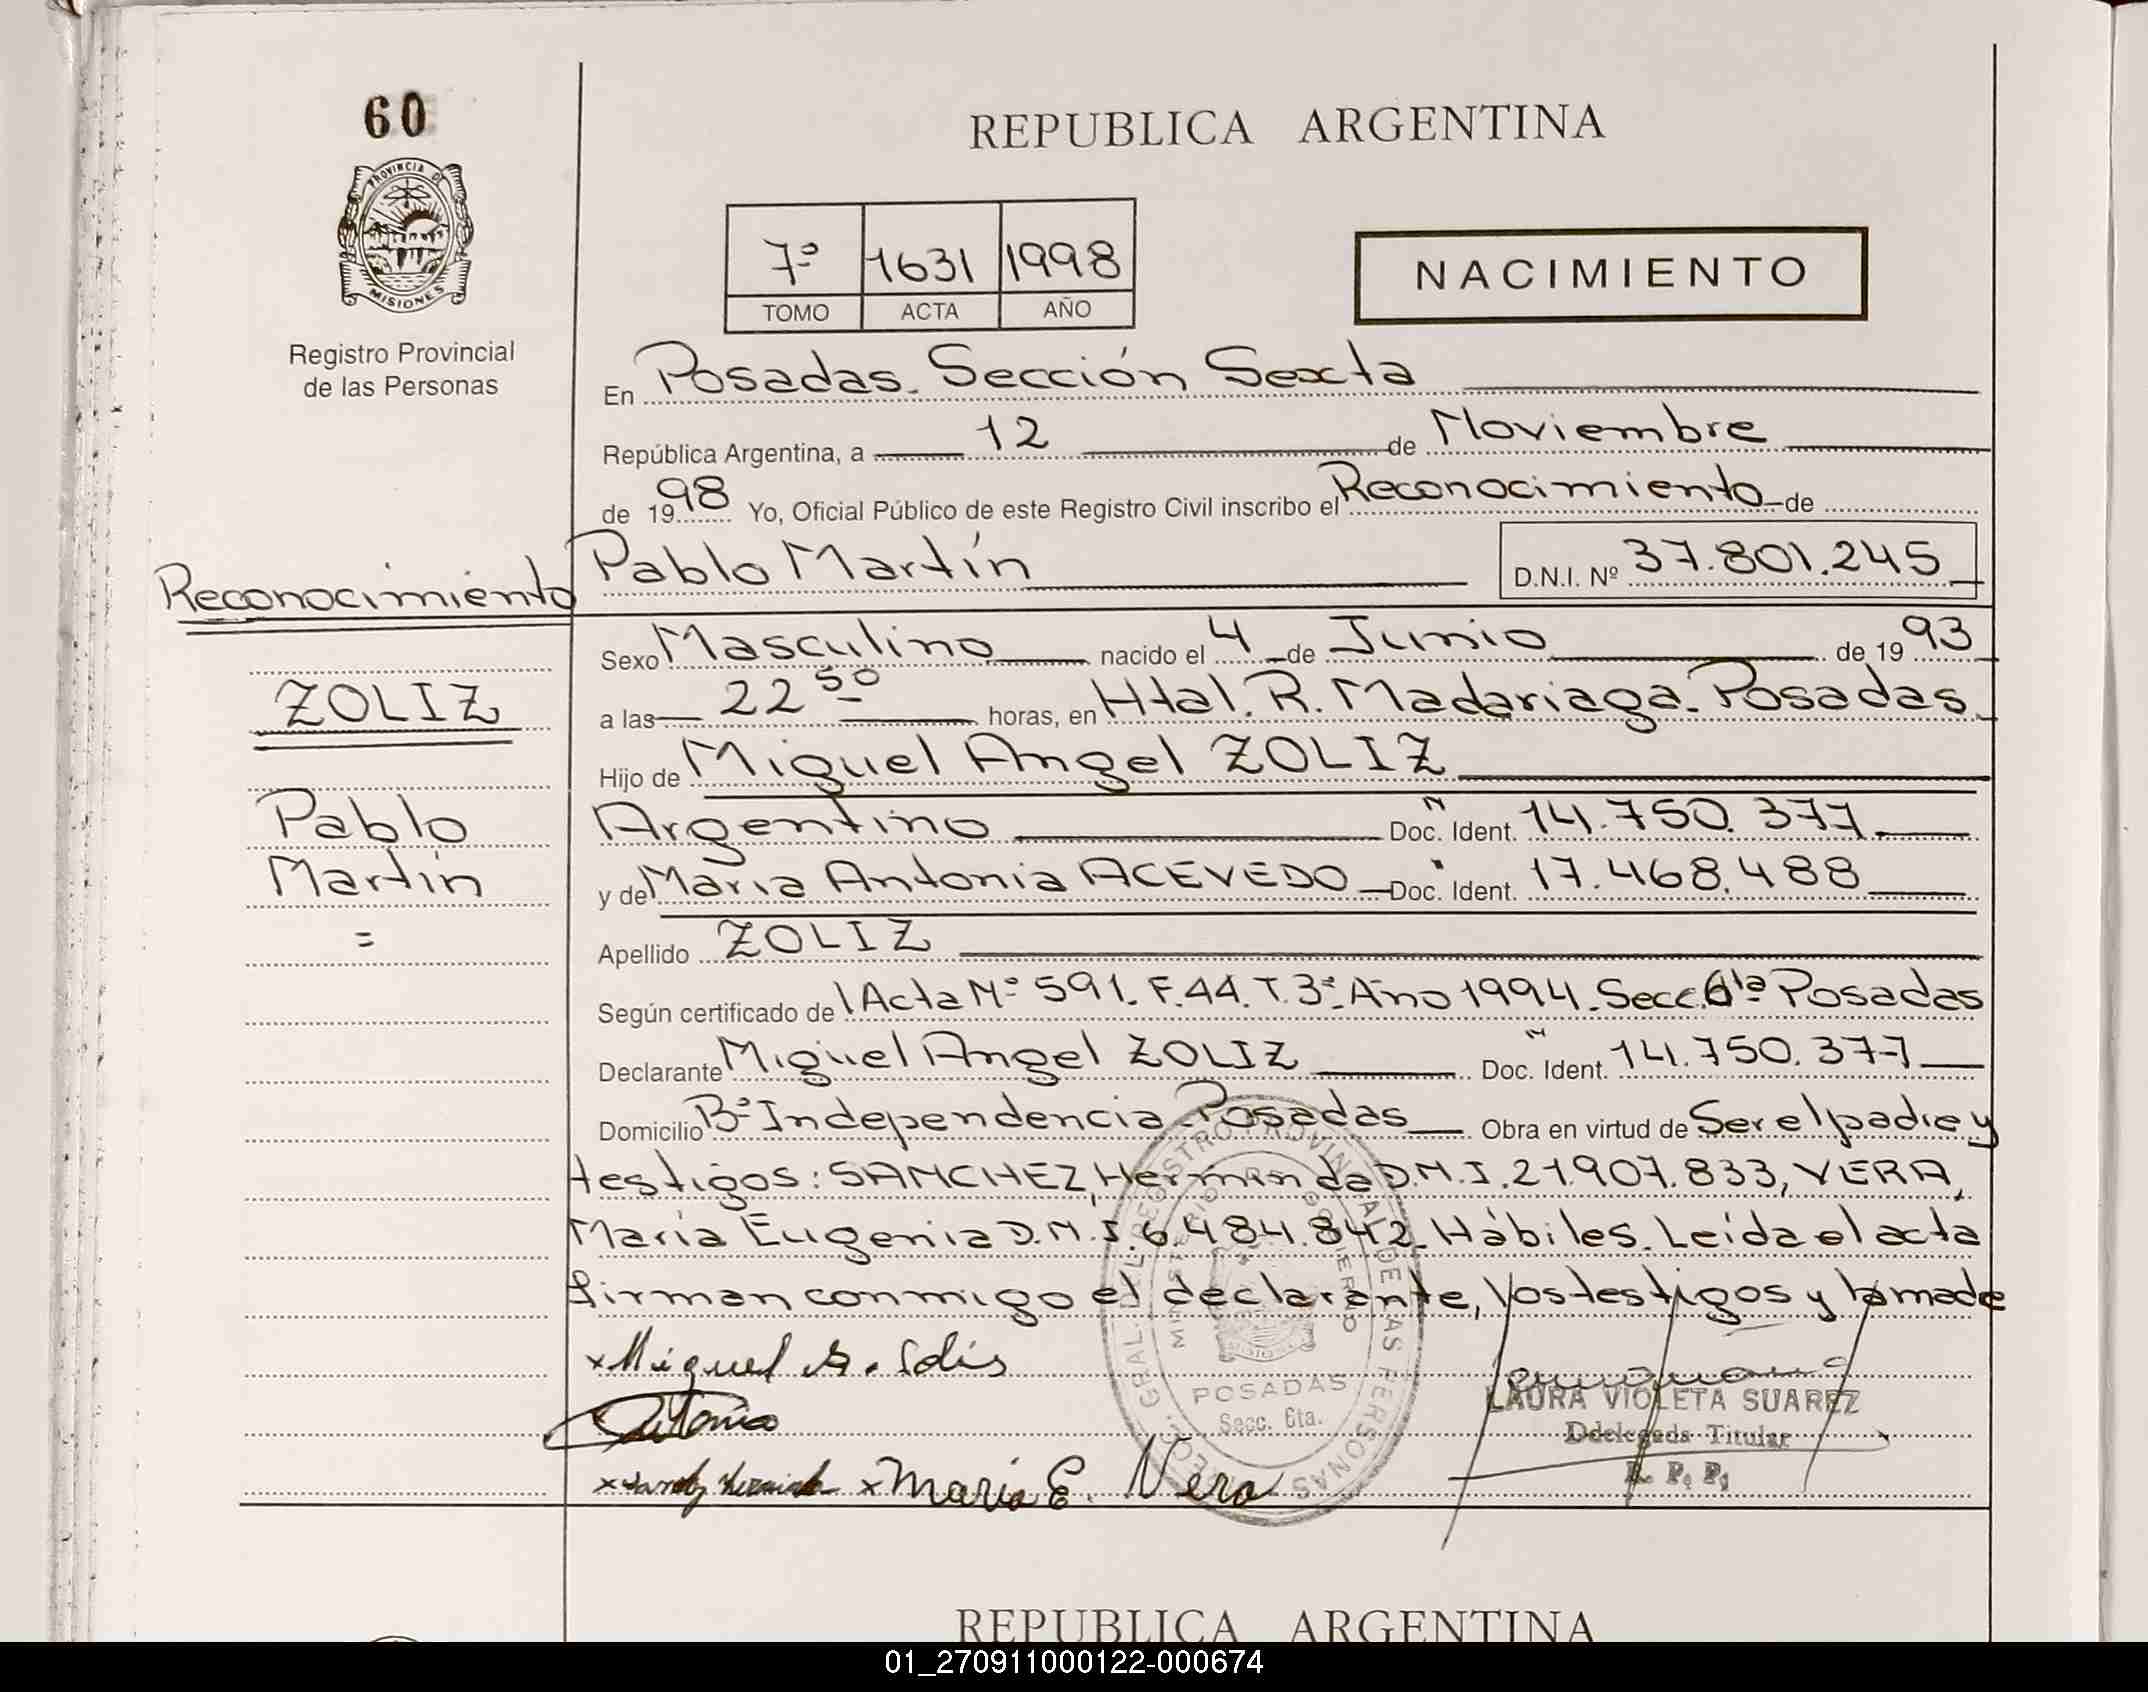 60
REPUBLICA ARGENTINA
PROVINCIA DE
MISIONES
7º 1631 1998
TOMO ACTA AÑO
NACIMIENTO
Registro Provincial
de las Personas
En Posadas. Sección Sexta
República Argentina, a 12 de Noviembre
de 1998 Yo, Oficial Público de este Registro Civil inscribo el Reconocimiento de
Pablo Martín D.N.I. Nº 37.801.245
Reconocimiento
Sexo Masculino nacido el 4 de Junio de 1993
ZOLIZ
a las 22 50 horas, en Htal. R. Madariaga. Posadas
Hijo de Miguel Angel ZOLIZ
Pablo
Argentino Doc. Ident. 14.750.377
Martín
y de María Antonia ACEVEDO Doc. Ident. 17.468.488
=
Apellido ZOLIZ
Según certificado de l Acta Nº 591. F.44. T.3º. Año 1994. Secc. 6ta Posadas
Declarante Miguel Angel ZOLIZ Doc. Ident. 14.750.377
Domicilio Bº Independencia Posadas Obra en virtud de Ser el padre y
testigos: SANCHEZ, Herminda D.N.I. 21.907.833, VERA,
María Eugenia D.N.I. 6.484.842. Hábiles. Leída el acta
firman conmigo el declarante, los testigos y la made
x Miguel A. Solis
Antonia
x María E. Vera
DIREC. GRAL. DEL REGISTRO PROVINCIAL DE LAS PERSONAS
MINISTERIO DE GOBIERNO
MISIONES
POSADAS
Secc. 6ta.
LAURA VIOLETA SUAREZ
Ddelegada Titular
R. P. P.
REPUBLICA ARGENTINA
01_270911000122-000674